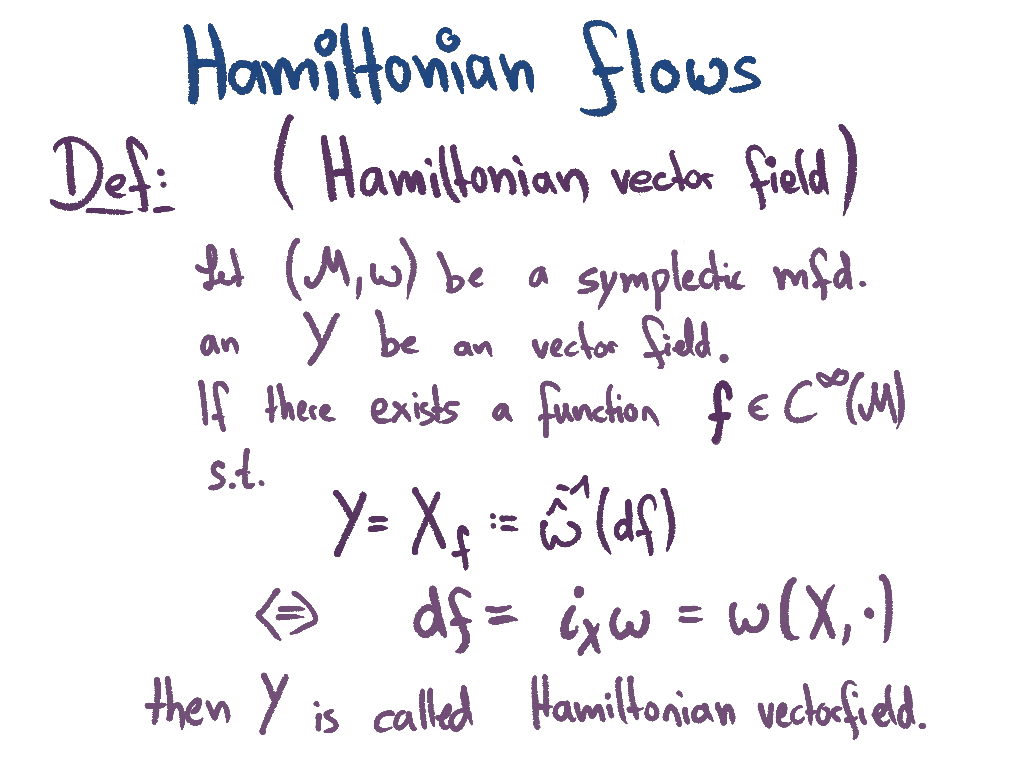 Hamiltonian flows
Def: (Hamiltonian vector field)
Let (M, ω) be a symplectic mfd.
an Y be an vector field.
If there exists a function f ∈ C^∞(M)
s.t.
Y = X_f := ω̂^{-1}(df)
⟺ df = i_X ω = ω(X, ·)
then Y is called Hamiltonian vectorfield.